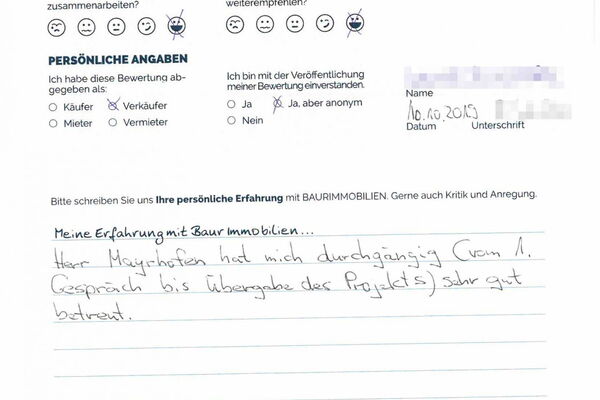 zusammenarbeiten?
weiterempfehlen?
PERSÖNLICHE ANGABEN
Ich habe diese Bewertung ab-
gegeben als:
Käufer Verkäufer
Mieter Vermieter
Ich bin mit der Veröffentlichung
meiner Bewertung einverstanden.
Ja Ja, aber anonym
Nein
Name
10.10.2019
Datum Unterschrift
Bitte schreiben Sie uns Ihre persönliche Erfahrung mit BAURIMMOBILIEN. Gerne auch Kritik und Anregung.
Meine Erfahrung mit Baur Immobilien...
Herr Mayrhofen hat mich durchgängig (vom 1.
Gespräch bis Übergabe des Projekts) sehr gut
betreut.